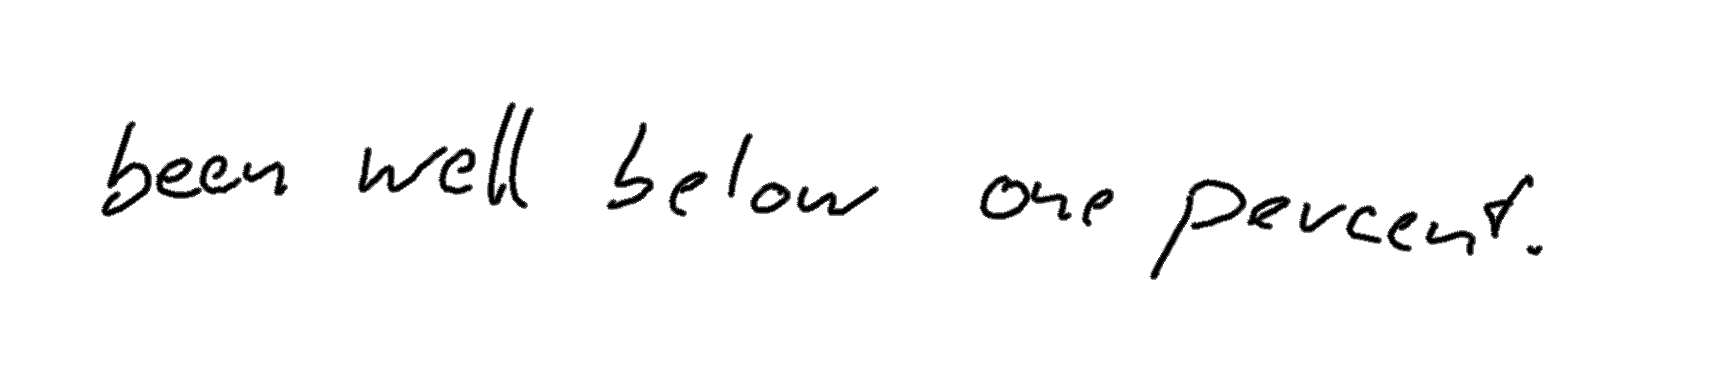 been well below one percent.